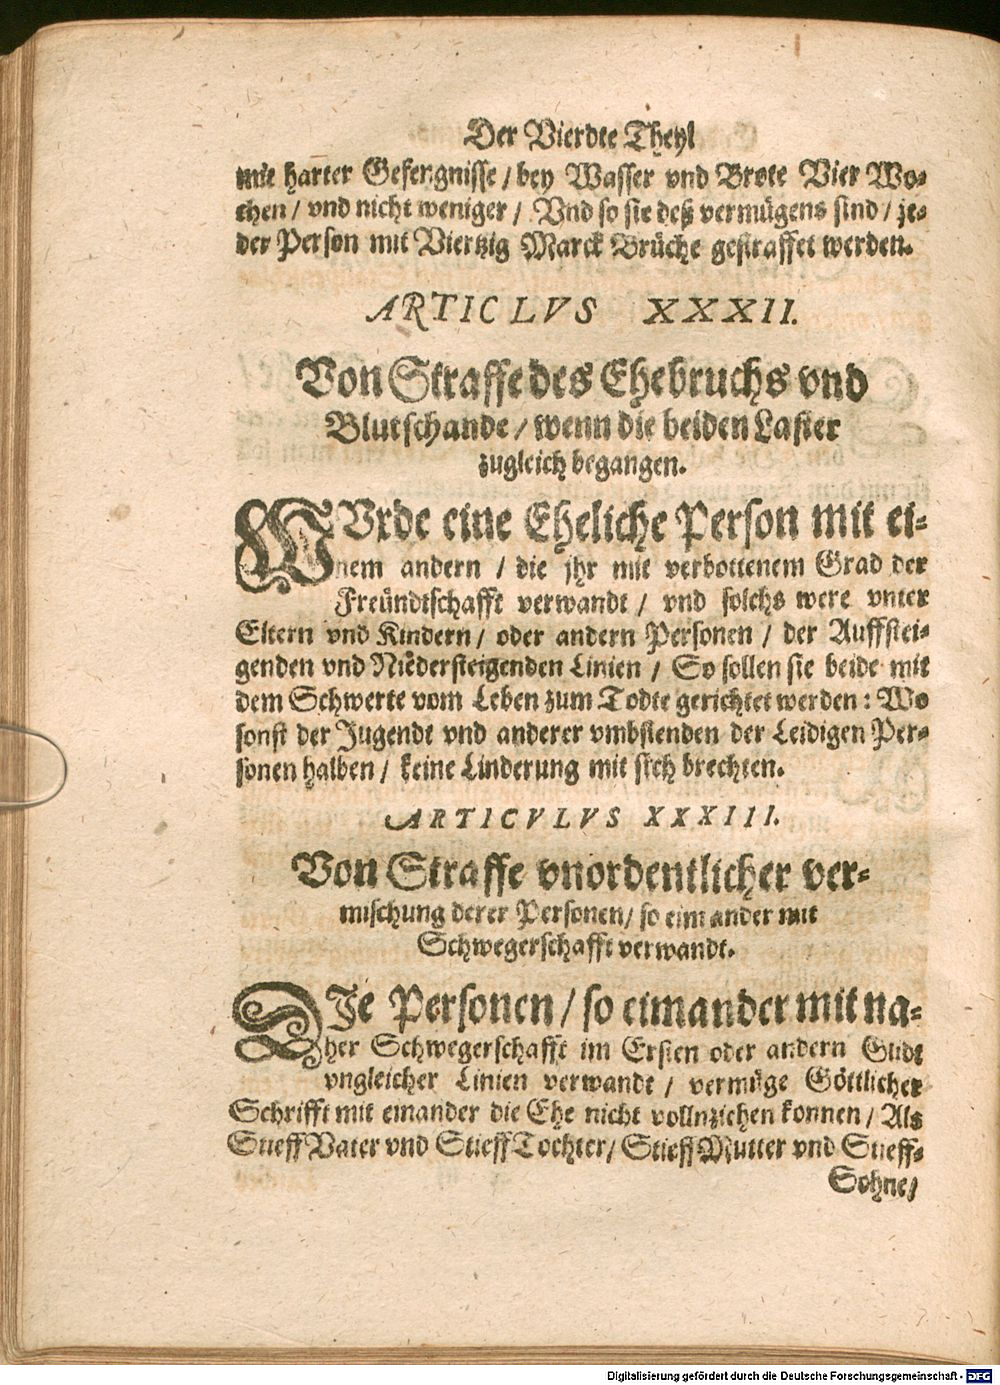 Der Vierdte Theyl
mit harter Gefengnisse / bey Wasser vnd Brote Vier Wo-
chen / vnd nicht weniger / Vnd so sie deß vermügens sind / je-
der Person mit Viertzig Marck Brüche gestraffet werden.
ARTICLVS XXXII.
Von Straffe des Ehebruchs vnd
Blutschande / wenn die beiden Laster
zugleich begangen.
WVrde eine Eheliche Person mit ei-
nem andern / die jhr mit verbottenem Grad der
Freündtschafft verwandt / vnd solchs were vnter
Eltern vnd Kindern / oder andern Personen / der Auffstei-
genden vnd Niedersteigenden Linien / So sollen sie beide mit
dem Schwerte vom Leben zum Todte gerichtet werden : Wo
sonst der Jugendt vnd anderer vmbstenden der Leidigen Per-
sonen halben / keine Linderung mit sich brechten.
ARTICVLVS XXXIII.
Von Straffe vnordentlicher ver-
mischung derer Personen / so einander mit
Schwegerschafft verwandt.
DIe Personen / so einander mit na-
her Schwegerschafft im Ersten oder andern Glidt
vngleicher Linien verwandt / vermüge Göttlicher
Schrifft mit einander die Ehe nicht vollnziehen konnen / Als
Stieff Vater vnd Stieff Tochter / Stieff Mutter vnd Stieff-
Sohne /
Digitalisierung gefördert durch die Deutsche Forschungsgemeinschaft - DFG